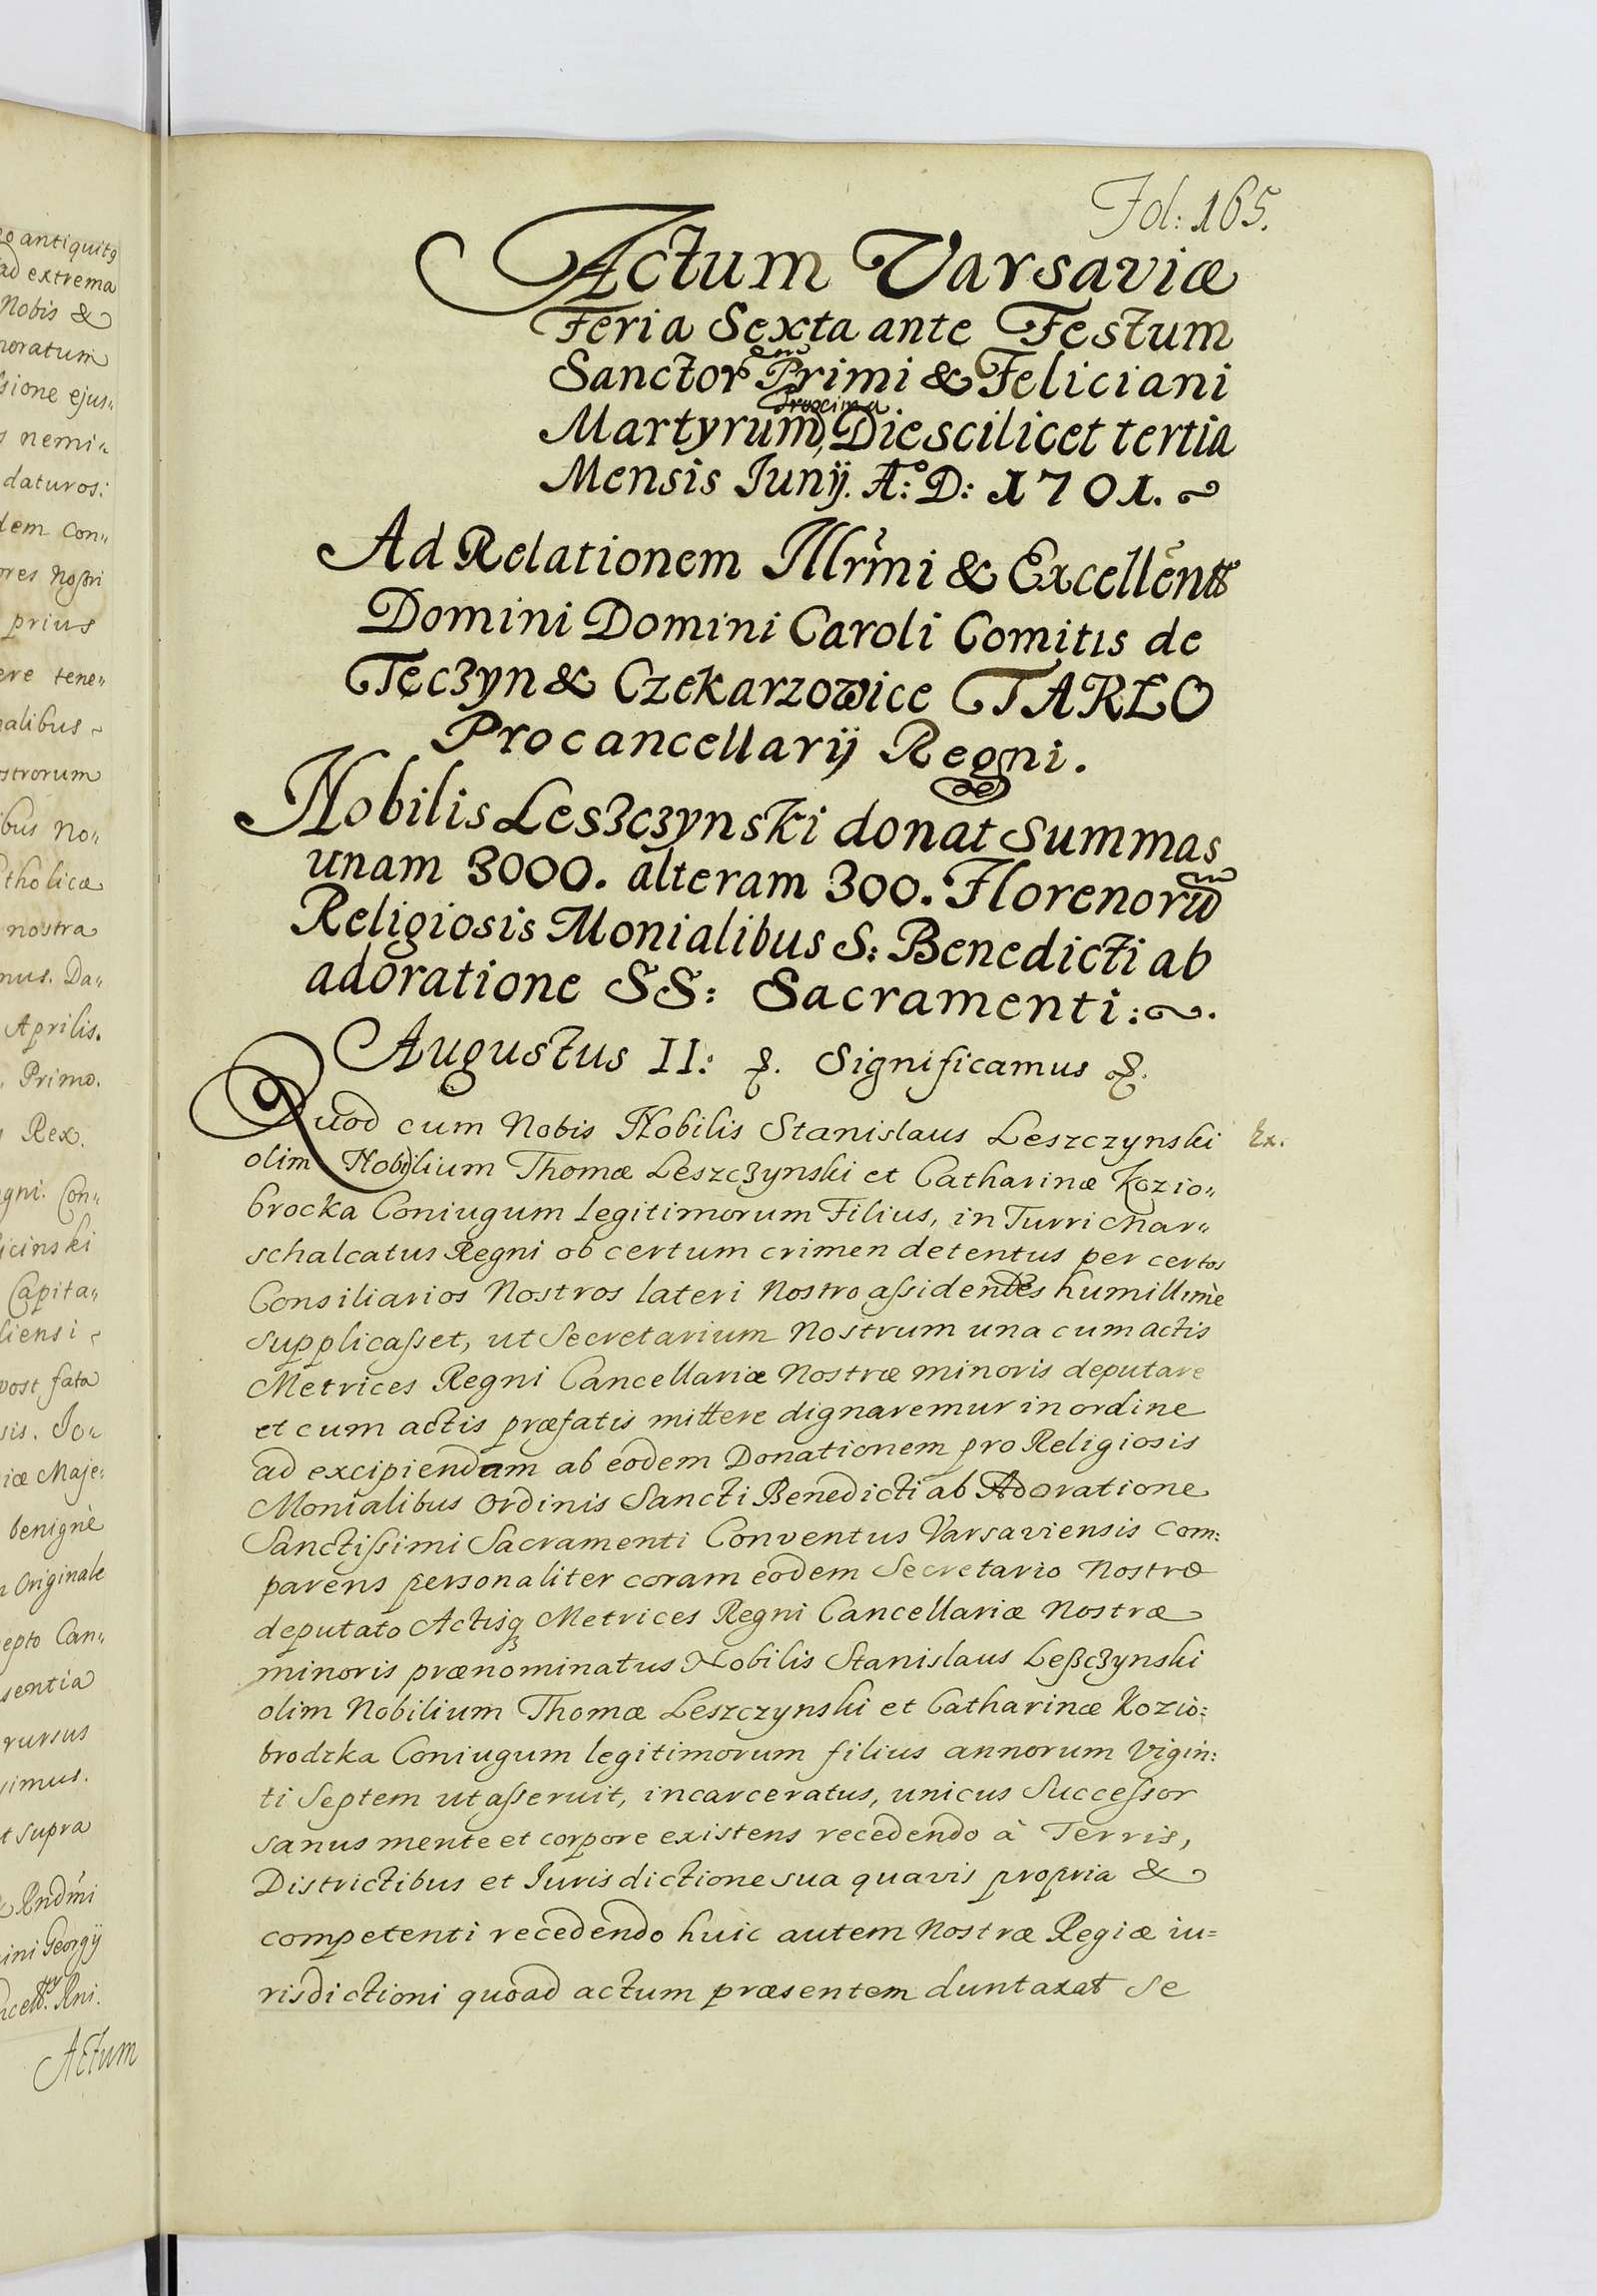 o antiquitq
ad extrema
Nobis &
noratum
sione ejus„
nemi„
daturos:
dem Con„
ores Nostri
prius
ere tene„
alibus
strorum
bus No„
tholicæ
nostra
mus. Da„
Aprilis.
Primo.
Rex.
gni. Con„
icinski
Capita„
liensi
post fata
sis. Jo„
iæ Maje:
benignè
Originale
epto Can„
sentia
rursus
imus.
t supra
Rndmi
ini Georgij
Rni.
Actum
Fol: 165.
Actum Varsaviæ
Feria Sexta ante Festum
Sanctorum Primi & Feliciani
Martyrum, proxima Die scilicet tertia
Mensis Junij. A:o D: 1701.
Ad Relationem Illrmi & Excellentt
Domini Domini Caroli Comitis de
Tęczyn & Czekarzowice TARŁO
Procancellarij Regni.
Nobilis Leszczynski donat Summas
unam 3000. alteram 300. Florenorum
Religiosis Monialibus S: Benedicti ab
adoratione SS: Sacramenti:
Augustus II: &. Significamus &.
Quod cum Nobis Nobilis Stanislaus Leszczynski Ex.
olim Nobilium Thomæ Leszczynski et Catharinæ Kozio„
brocka Coniugum Legitimorum Filius, in Turri Mar„
schalcatus Regni ob certum crimen detentus per certos
Consiliarios Nostros lateri Nostro assidentes humillimè
supplicasset, ut Secretarium Nostrum una cum actis
Metrices Regni Cancellariæ Nostræ minoris deputare
et cum actis præfatis mittere dignaremur in ordine
ad excipiendam ab eodem Donationem pro Religiosis
Monialibus Ordinis Sancti Benedicti ab Adoratione
Sanctissimi Sacramenti Conventus Varsaviensis Com:
parens personaliter coram eodem Secretario Nostro
deputato Actisq Metrices Regni Cancellariæ Nostræ
minoris prænominatus Nobilis Stanislaus Leßczynski
olim Nobilium Thomæ Leszczynski et Catharinæ Kozio:
brodzka Coniugum legitimorum filius annorum Vigin:
ti Septem ut asseruit, incarceratus, unicus Successor
sanus mente et corpore existens recedendo à Terris,
Districtibus et Iurisdictione sua quavis propria &
competenti recedendo huic autem Nostræ Regiæ iu=
risdictioni quoad actum præsentem duntaxat se